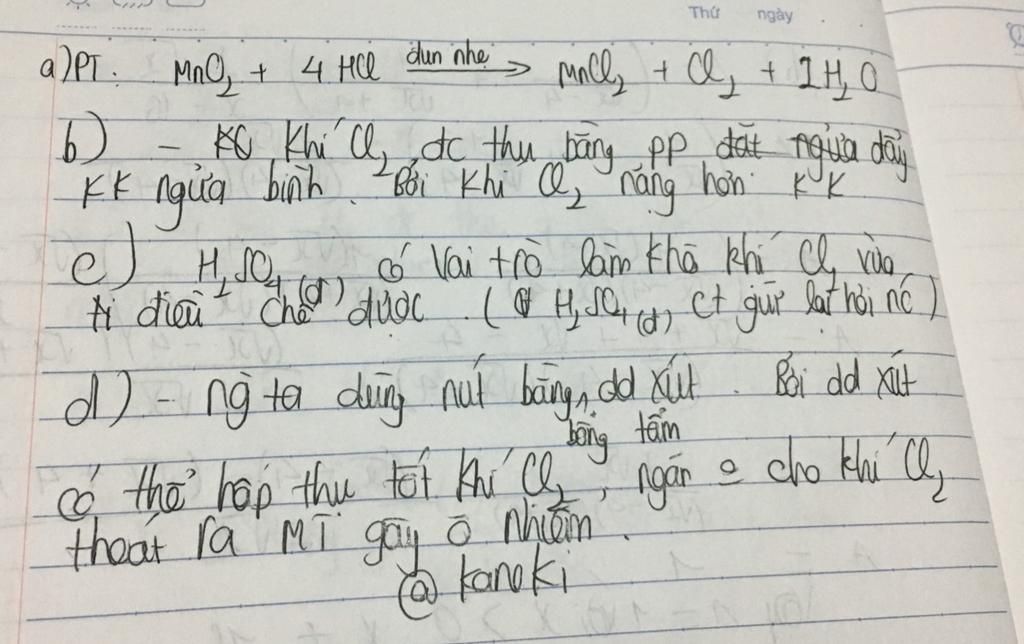 Thứ ngày
a) PT: MnO2 + 4 HCl đun nhẹ → MnCl2 + Cl2 + 2H2O
b) - Khí Cl2 đc thu bằng pp đặt ngửa đẩy
KK ngửa bình. Bởi khí Cl2 nặng hơn KK
c) H2SO4(đ) có vai trò làm khô khí Cl2 vừa
điều chế được. (H2SO4(đ) giữ lại hơi nc)
d) - ng ta dùng nút bằng dd xút. Bởi dd xút
bông tẩm
có thể hấp thu tốt khí Cl2, ngăn cho khí Cl2
thoát ra MT gây ô nhiễm.
@ kaneki